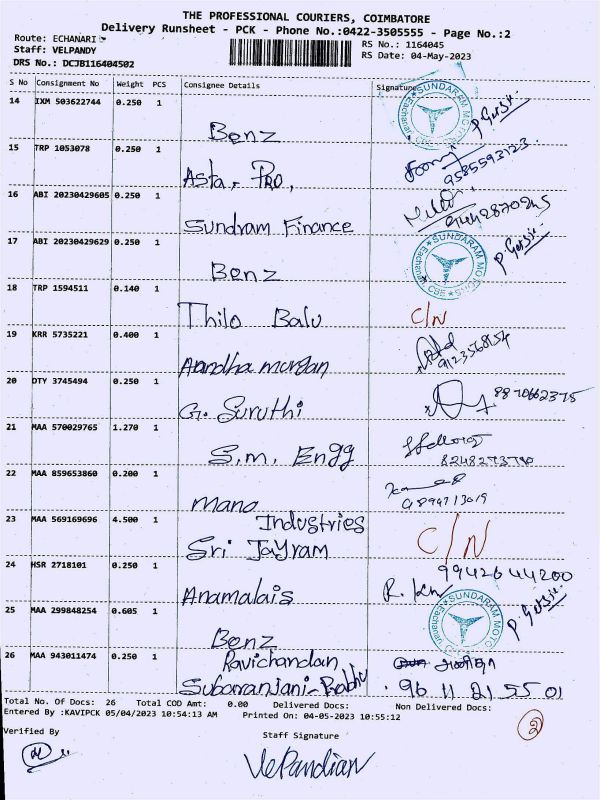 THE PROFESSIONAL COURIERS, COIMBATORE
Delivery Runsheet - PCK - Phone No.:0422-3505555 - Page No.:2
Route: ECHANARI
RS No.: 1164045
Staff: VELPANDY
RS Date: 04-May-2023
DRS No.: DCJB116404502
S No Consignment No Weight PCS Consignee Details Signature
14 IXM 503622744 0.250 1
SUNDARAM MOTO
Benz
15 TRP 1053078 0.250 1
9585593123
Asta. Pro,
16 ABI 20230429605 0.250 1
9442870245
Sundram Finance
17 ABI 20230429629 0.250 1
SUNDARAM MOTO
Benz
CBE
18 TRP 1594511 0.140 1
Thilo Balu C/N
19 KRR 5735221 0.400 1
9123568154
Anandha murgan
20 DTY 3745494 0.250 1
8870662375
G. Suruthi
21 MAA 570029765 1.270 1
S.m. Engg
22 MAA 859653860 0.200 1
9894713019
mano
Industries
23 MAA 569169696 4.500 1
Sri Jayram C/N
24 HSR 2718101 0.250 1
9942644200
Anamalais
25 MAA 299848254 0.605 1
SUNDARAM MOTO
Benz
26 MAA 943011474 0.250 1
Ravichandan
Subarranjani-Prabhu 96 11 21 55 01
Total No. Of Docs: 26 Total COD Amt: 0.00 Delivered Docs: Non Delivered Docs:
Entered By :KAVIPCK 05/04/2023 10:54:13 AM Printed On: 04-05-2023 10:55:12
2
Verified By
Staff Signature
VelPandian